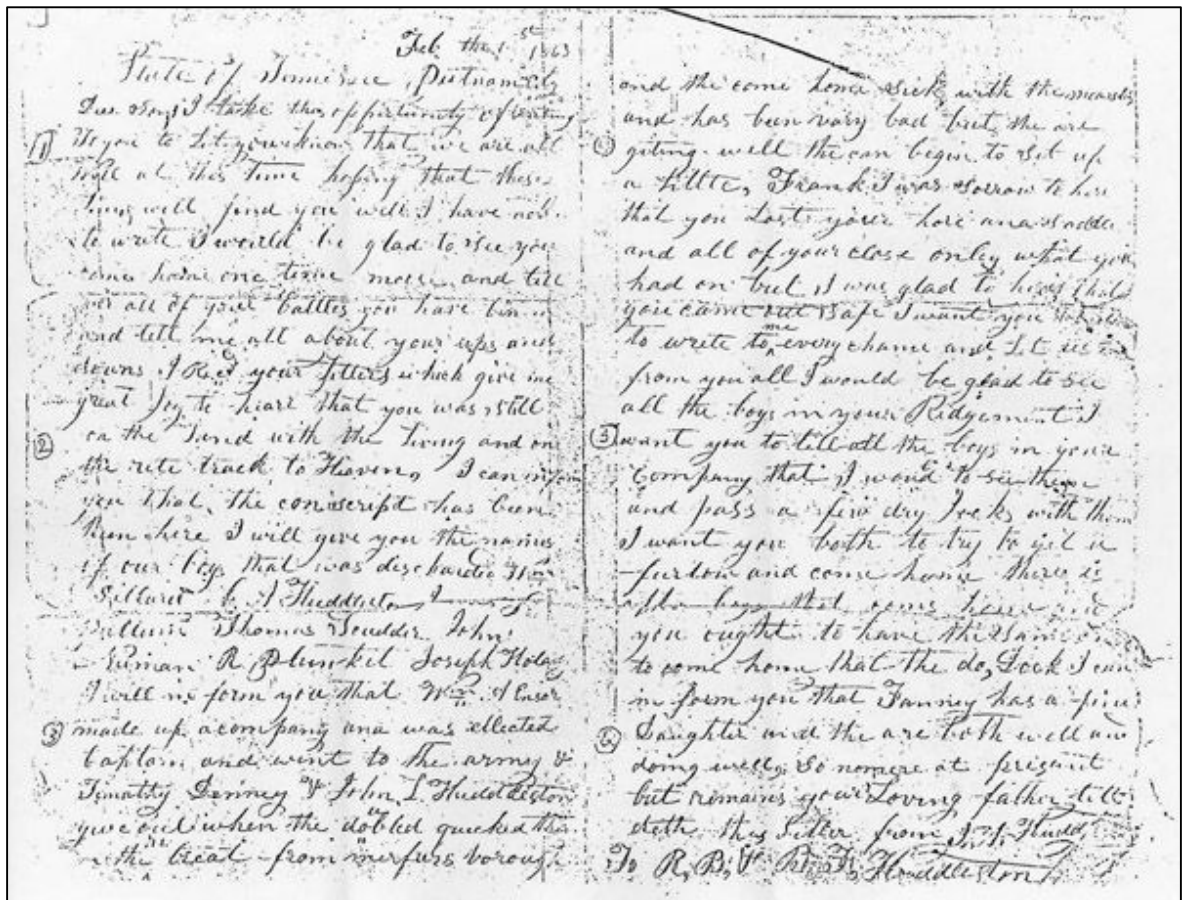 Feb the 1st 1863
State of Tennessee, Putnam Cty
Dear Sons I take this oppertunity of writing
1 to you to Let you know that we are all
well at this time hoping that these
lines will find you well. I have not
to write I would be glad to see you
come home one time more and tell
me all of your battles you have bin in
and tell me all about your ups and
downs. I Recd your Litters which give me
great Joy to heart that you was still
2 on the Land with the Living and on
the rite track to Heaven, I can inform
you that, the conscript has been
here I will give you the names
of our boys that was dischardie Wm
C A Huddleston
Thomas Scudder John
R, Plunket Joseph
I will in form you that Wm A Ensor
3 made up a company and was ellected
Captain and went to the army &
Timatty Denney & John L Huddleston
give out when the dobled quicked them
in the treat from merfurs borough
and the come home sick, with the measels
4 and has been vary bad but, the are
giting well the can begin to set up
a Little, Frank I was sorrow to hire
that you Lost your hors and sadle
and all of your close onley what you
had on but I was glad to hire that
you came out safe I want you
to write to me every chance and Let us
from you all I would be glad to see
all the boys in your Ridgement I
5 want you to till all the boys in your
Company that, I wand to see them
and pass a few dry Jocks with them
I want you both to try to git a
furlow and come home there is
boys that coms home and
you ought to have the same
to come home that the do, Dock I can
in form you that Fanney has a fine
6 Daughter and the are both well and
doing well, So nomore at presant
but remains your Loving father till
deth this Litter from Hudd
To R, B, & B, F, Huddleston